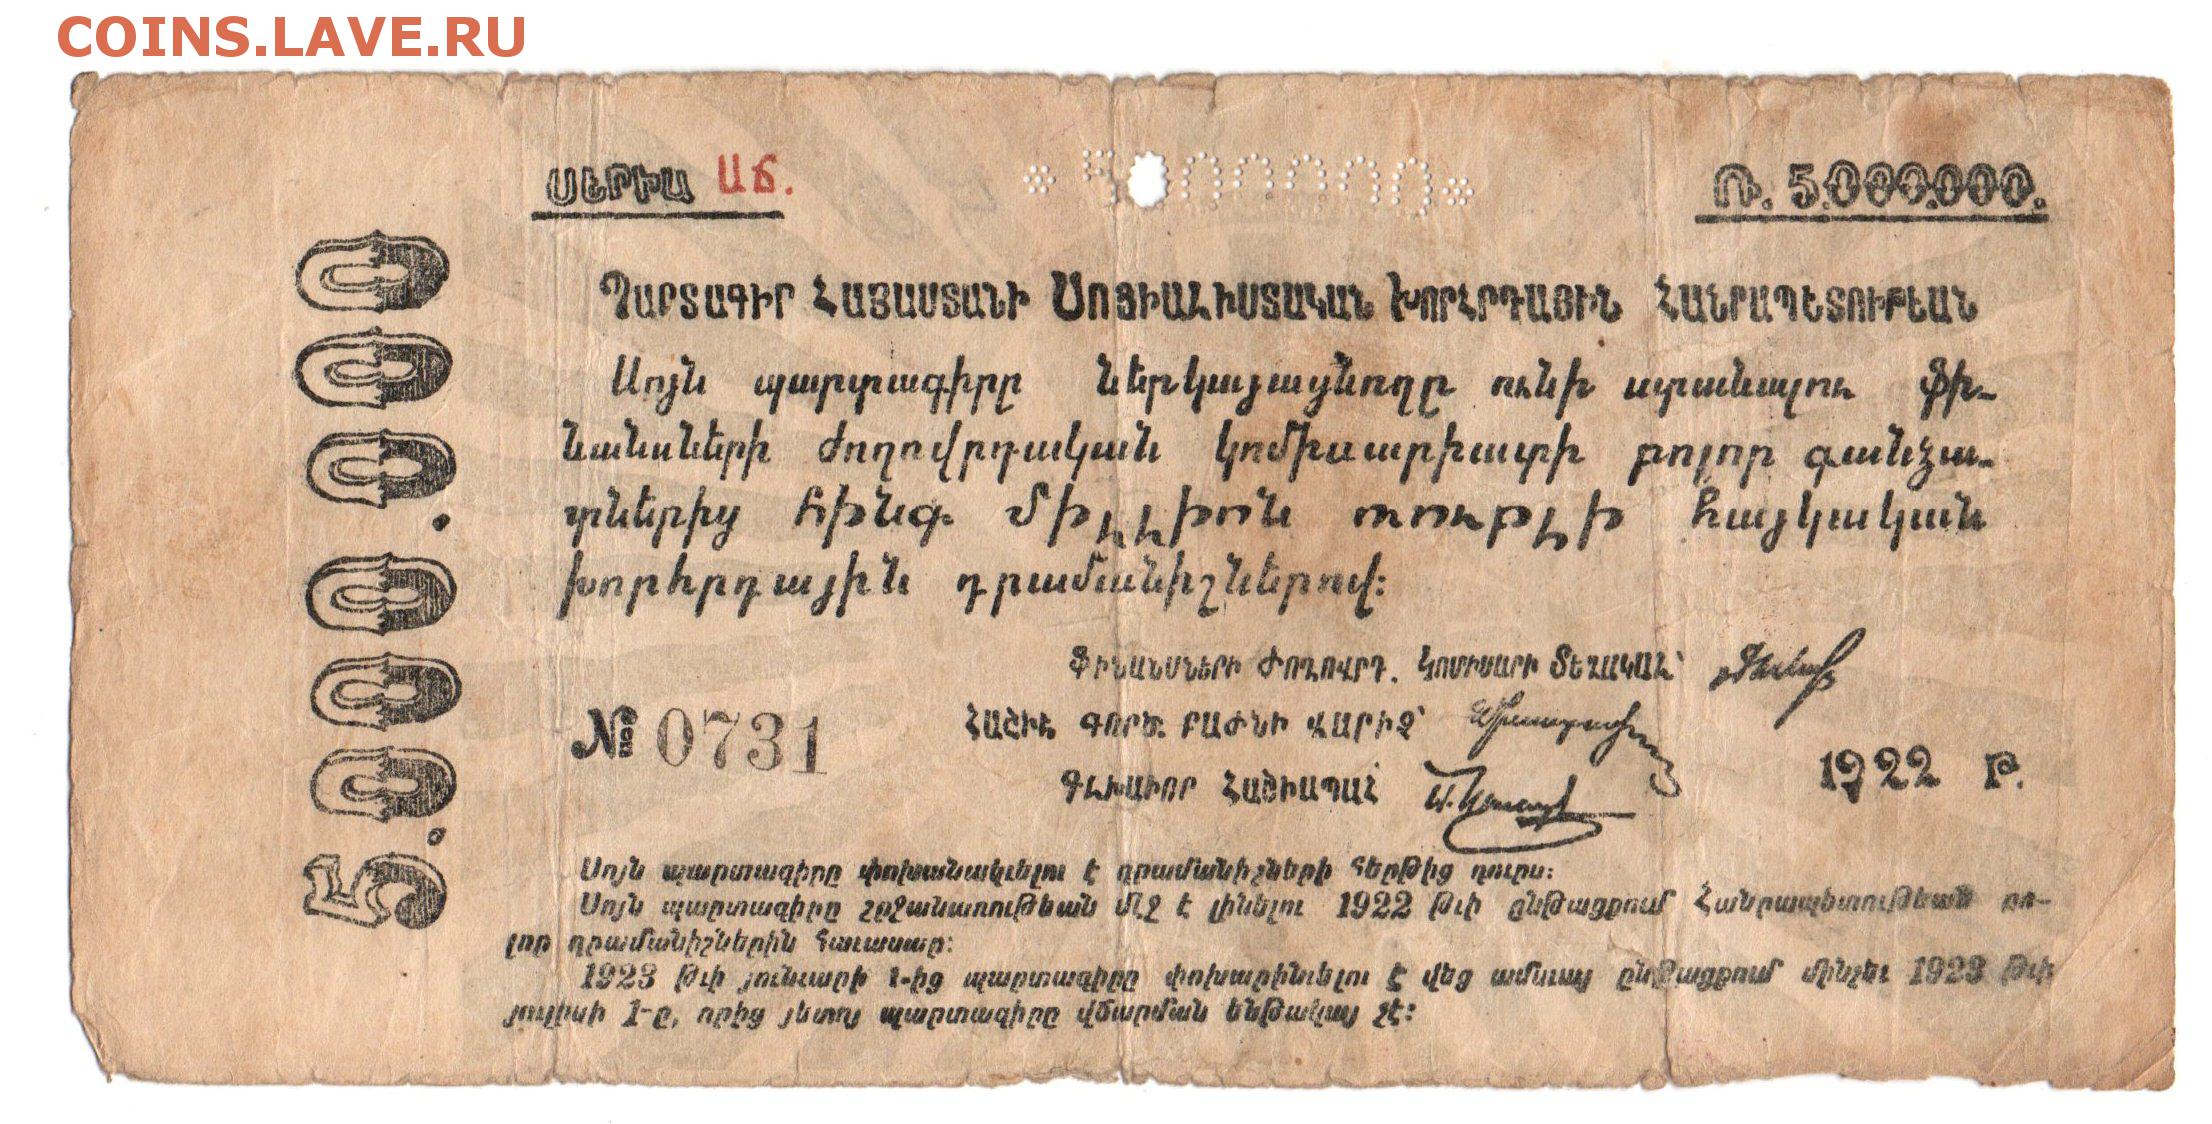 COINS.LAVE.RU
ՍԵՐԻԱ ԱՃ.
* 5000000 *
Ռ. 5.000.000.
5.000.000
ՊԱՐՏԱԳԻՐ ՀԱՅԱՍՏԱՆԻ ՍՈՑԻԱԼԻՍՏԱԿԱՆ ԽՈՐՀՐԴԱՅԻՆ ՀԱՆՐԱՊԵՏՈՒԹԵԱՆ
Սոյն պարտագիրը ներկայացնողը ունի ստանալու ֆի-
նանսների ժողովրդական կոմիսարիատի բոլոր գանձա-
տներից հինգ միլլիոն ռուբլի հայկական
խորհրդային դրամանիշներով:
ՖԻՆԱՆՍՆԵՐԻ ԺՈՂՈՎՐԴ. ԿՈՄԻՍԱՐԻ ՏԵՂԱԿԱԼ՝
№ 0731
ՀԱՇԻՒ ԳՈՐԾ. ԲԱԺՆԻ ՎԱՐԻՉ՝
ԳԼԽԱՒՈՐ ՀԱՇԻԱՊԱՀ՝
1922 Թ.
Սոյն պարտագիրը փոխանակւելու է դրամանիշների հերթից դուրս:
Սոյն պարտագիրը շրջանառութեան մէջ է լինելու 1922 թւի ընթացքում Հանրապետութեան բո-
լոր դրամանիշներին հաւասար:
1923 թւի յունւարի 1-ից պարտագիրը փոխարինւելու է վեց ամսւայ ընթացքում մինչեւ 1923 թւի
յուլիսի 1-ը, որից յետոյ պարտագիրը վճարման ենթակայ չէ: